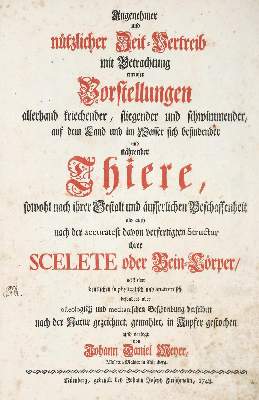 Angenehmer
und
nützlicher Zeit-Vertreib
mit Betrachtung
curioser
Vorstellungen
allerhand kriechender, fliegender und schwimmender,
auf dem Land und im Wasser sich befindender
und
nährender
Thiere,
sowohl nach ihrer Gestalt und äusserlichen Beschaffenheit
als auch
nach der accuratest davon verfertigten Structur
ihrer
SCELETE oder Bein-Cörper/
nebst einer
deutlichen so physicalisch und anatomisch
besonders aber
osteologisch und mechanischen Beschreibung derselben
nach der Natur gezeichnet, gemahlet, in Kupfer gestochen
und verlegt
von
Johann Daniel Meyer,
Nürnberg, gedruckt bey Johann Joseph Fleischmann, 1748.